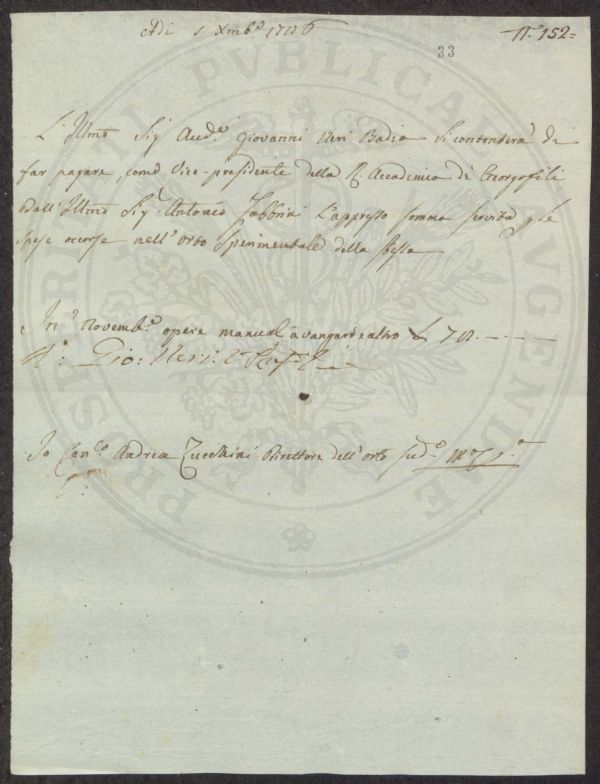 Adi 5. Xmb.e 1786
N.o 152=
33
L'Illmo Sig. Aud.e Giovanni Neri Badia si contenterà di
far pagare, come Vice-presidente della R. Accademia de Georgofili
Dall'Illmo Sig.r Antonio Fabbrini l'appresso somma servita p le
spese occorse nell'Orto Sperimentale della stessa
In Novemb.e opere manuali a vangare e altro
Gio: Neri
Io Can.co Andrea Zucchini Direttore dell'Orto sud.o
PROSPERITATI PVBLICAE AVGENDAE